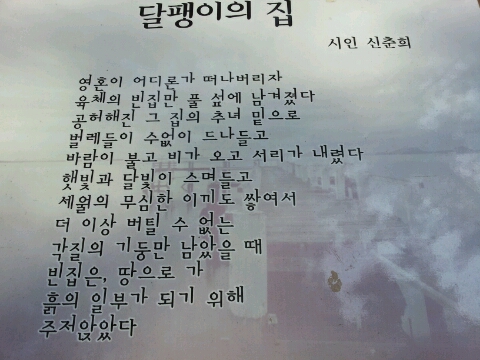 달팽이의 집
시인 신춘희
영혼이 어디론가 떠나버리자
육체의 빈집만 풀 섶에 남겨졌다
공허해진 그 집의 추녀 밑으로
벌레들이 수없이 드나들고
바람이 불고 비가 오고 서리가 내렸다
햇빛과 달빛이 스며들고
세월의 무심한 이끼도 쌓여서
더 이상 버틸 수 없는
각질의 기둥만 남았을 때
빈집은, 땅으로 가
흙의 일부가 되기 위해
주저앉았다